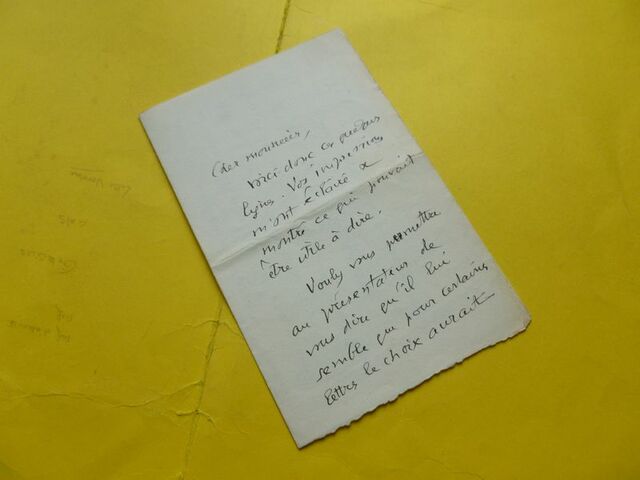 Cher monsieur,
voici donc ces quelques
lignes. Vos impressions
m'ont éclairé &
montré ce qui pouvait
être utile à dire.
Voulez vous permettre
au présentateur de
vous dire qu'il lui
semble que pour certaines
lettres le choix aurait